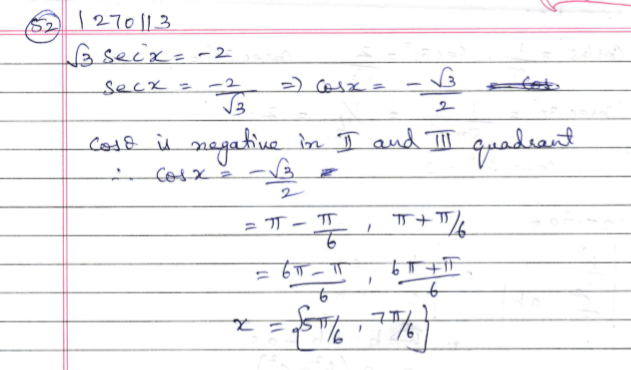 52) 1270113
√3 sec x = -2
sec x = -2/√3 ⇒ cos x = -√3/2
cosθ is negative in II and III quadrant
∴ cos x = -√3/2
= π - π/6 , π + π/6
= 6π - π/6 , 6π + π/6
x = {5π/6 , 7π/6}